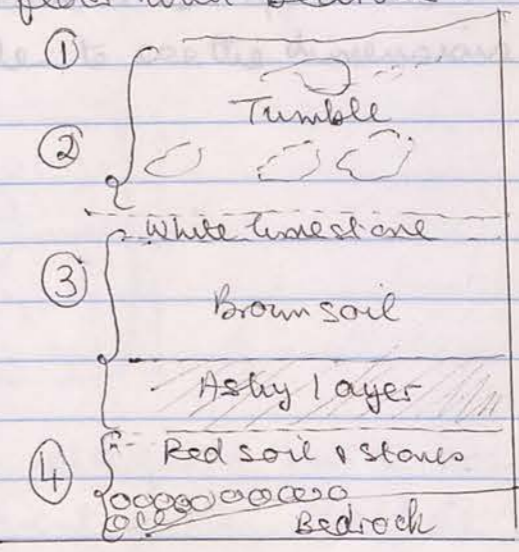 floor and
①
Tumble
②
White limestone
③
Brown soil
Ashy layer
④
Red soil & stones
Bedrock